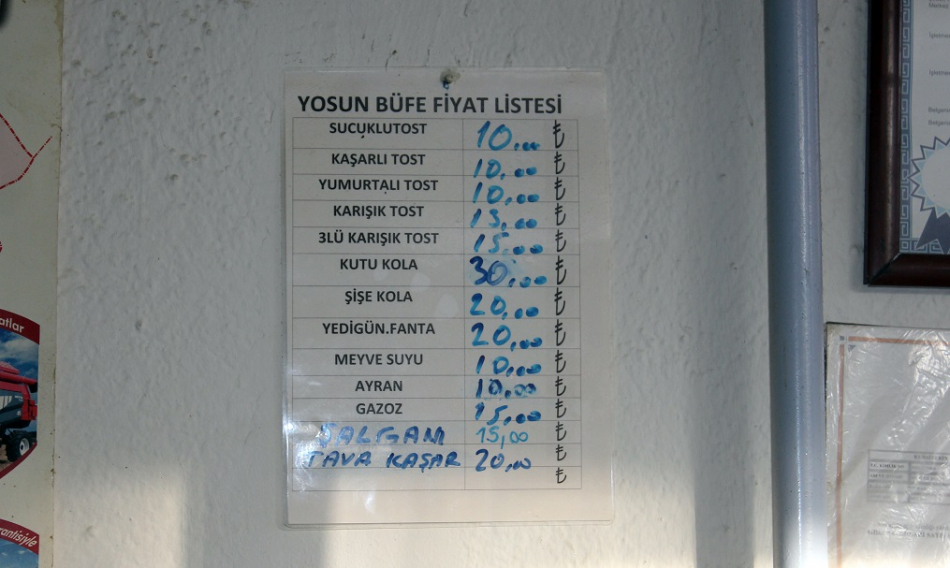 YOSUN BÜFE FİYAT LİSTESİ
SUCUKLUTOST 10.00 ₺
KAŞARLI TOST 10,00 ₺
YUMURTALI TOST 10,00 ₺
KARIŞIK TOST 15,00 ₺
3LÜ KARIŞIK TOST 15,00 ₺
KUTU KOLA 30,00 ₺
ŞİŞE KOLA 20,00 ₺
YEDİGÜN.FANTA 20,00 ₺
MEYVE SUYU 10,00 ₺
AYRAN 10,00 ₺
GAZOZ 15,00 ₺
ŞALGAM 15,00 ₺
TAVA KAŞAR 20,00 ₺
₺
atlar